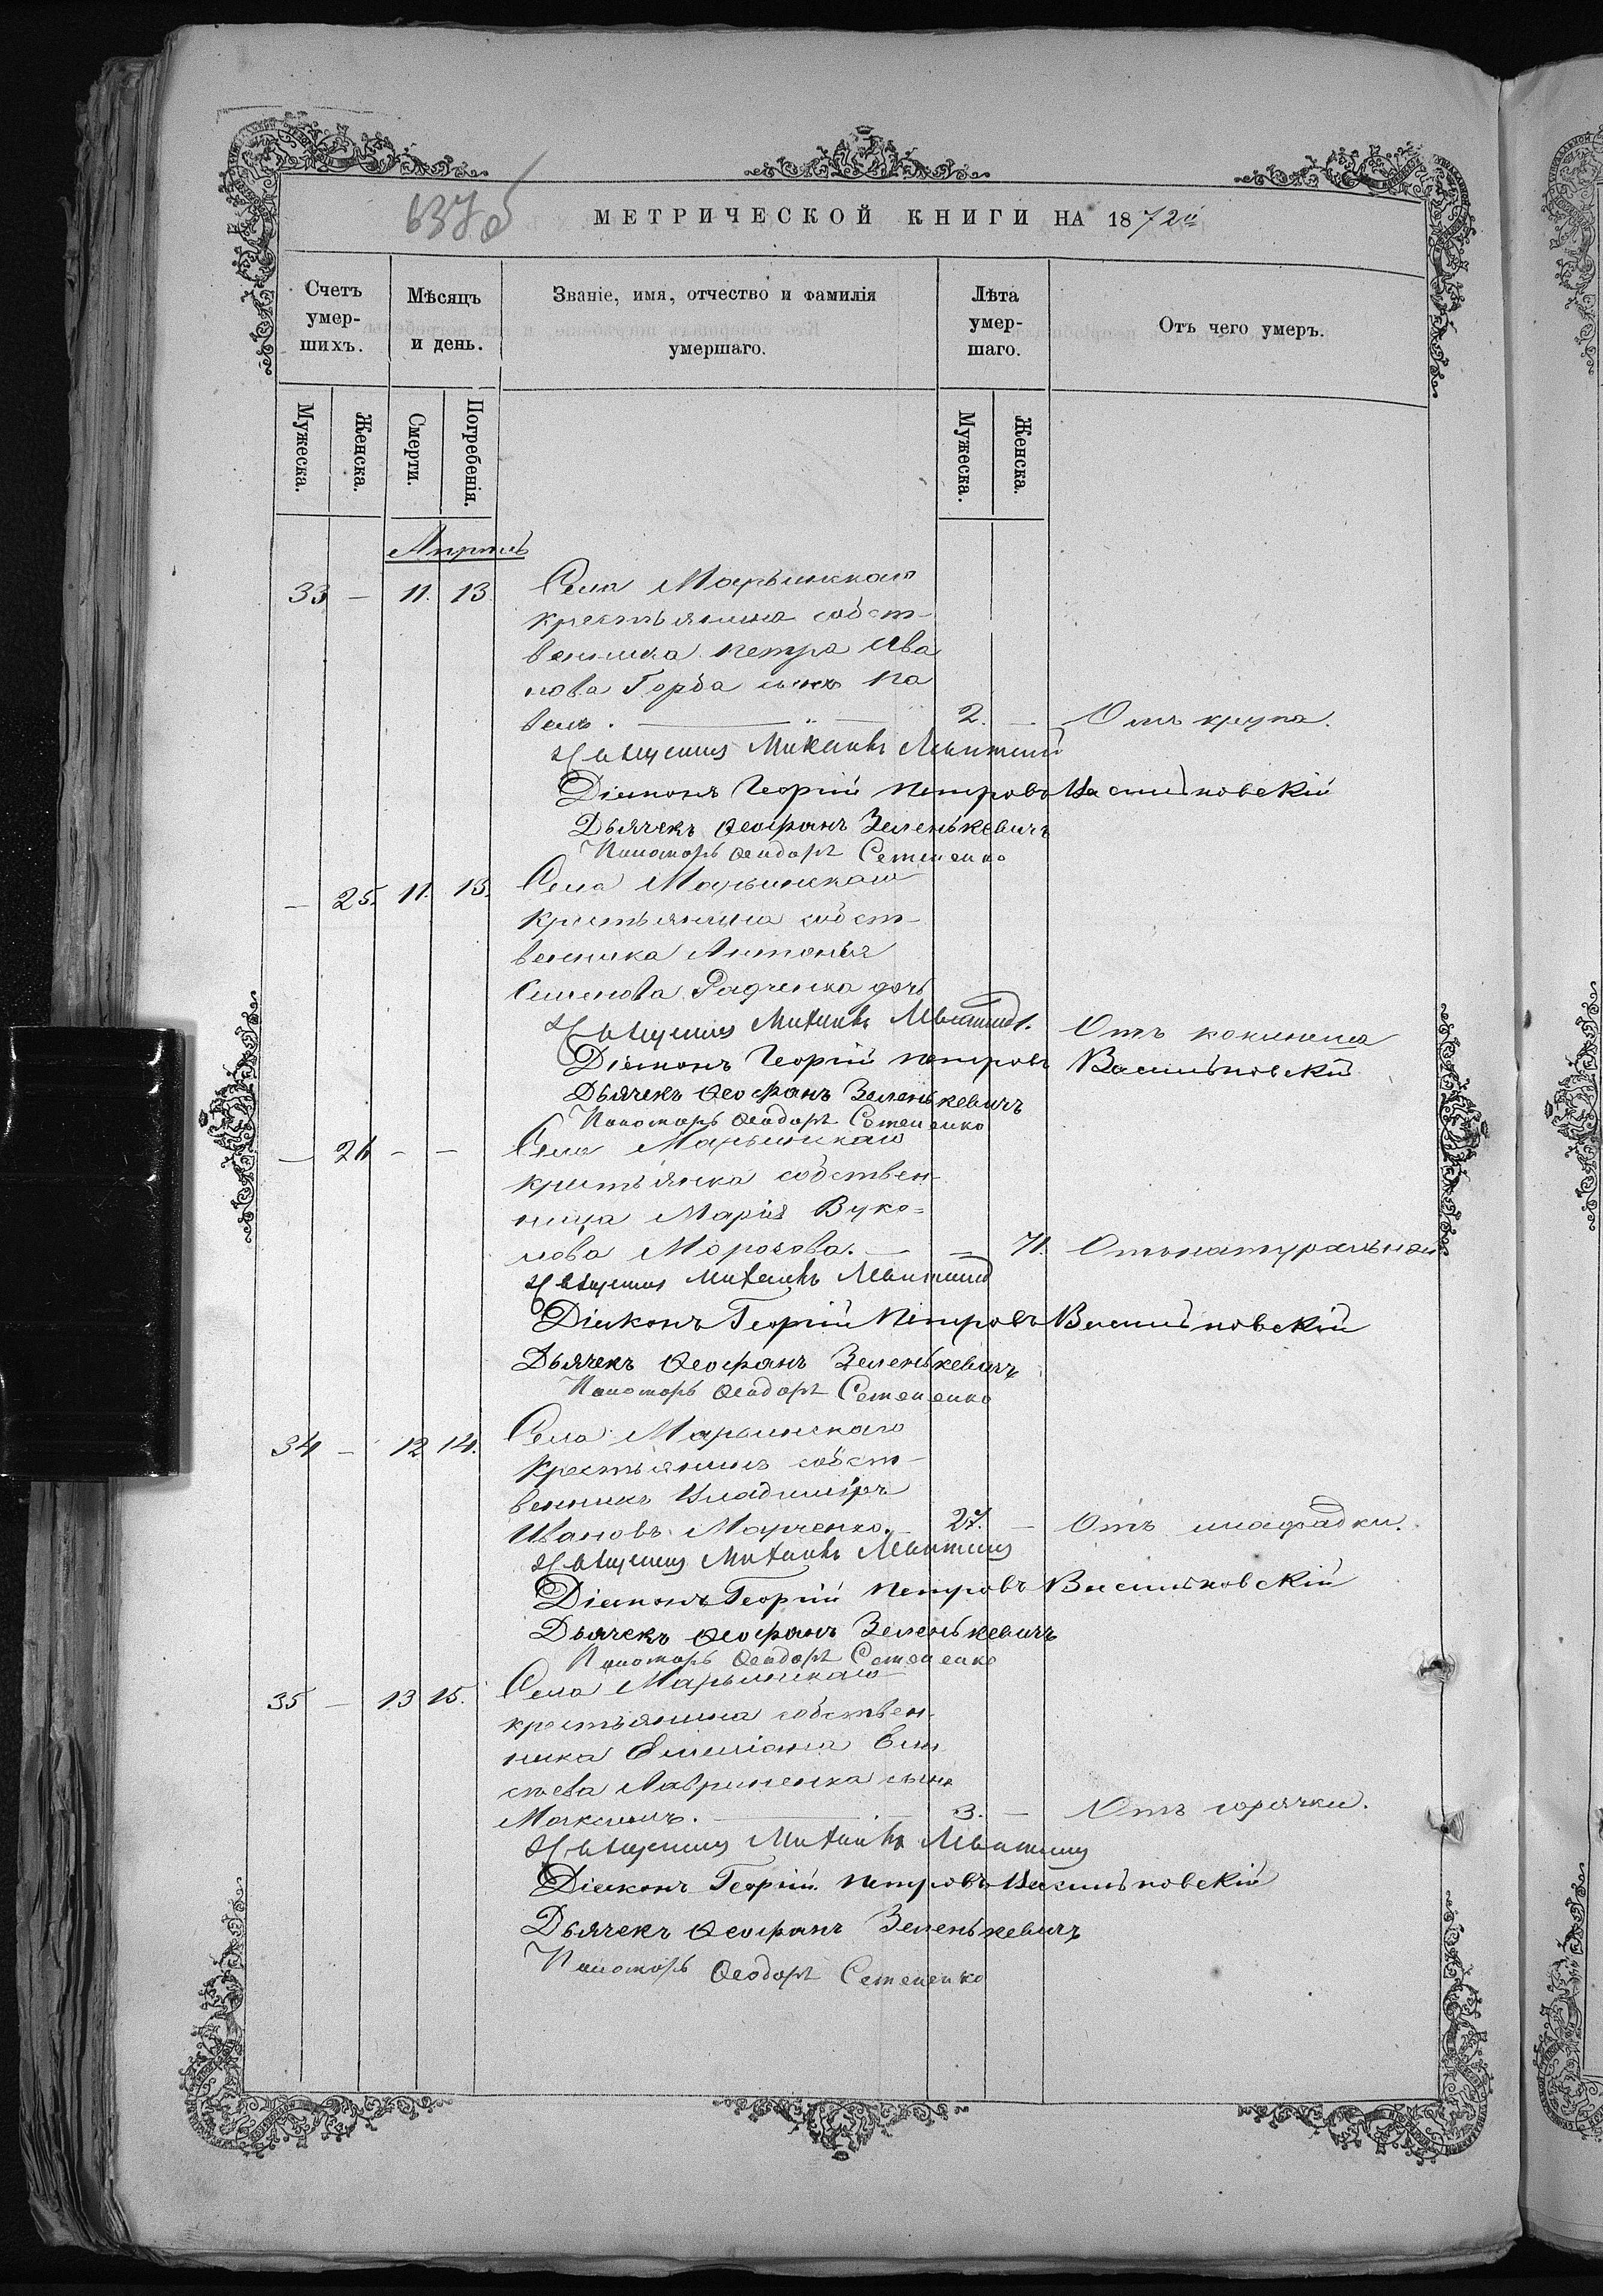 637 об
МЕТРИЧЕСКОЙ КНИГИ НА 1872й
Счетъ умер-шихъ.
Мѣсяцъ и день.
Званіе, имя, отчество и фамилія умершаго.
Лѣта умер-шаго.
Отъ чего умеръ.
Мужеска.
Женска.
Смерти.
Погребенія.
Мужеска.
Женска.
Апрѣль
33 — 11. 13. Села Марьинскаго
крестьянина собст-
венника Петра Ива
нова Горба сынъ Па
велъ. — 2. — Отъ крупа.
Священникъ Михаилъ
Діаконъ Георгій Петровъ Васильковскій
Дьячекъ Ѳеофанъ Зеленькевичъ
Пономарь Ѳеодоръ Семененко
— 25. 11. 13. Села Марьинскаго
крестьянина собст-
венника Антонія
Семенова Радченка дочь
Священникъ Михаилъ 1. Отъ коклюша
Діаконъ Георгій Петровъ Васильковскій
Дьячекъ Ѳеофанъ Зеленькевичъ
Пономарь Ѳеодоръ Семененко
— 26 — — Села Марьинскаго
крестьянка собствен-
ница Марія Вуко-
лова Морозова. — — 71. Отъ натуральной
Священникъ Михаилъ
Діаконъ Георгій Петровъ Васильковскій
Дьячекъ Ѳеофанъ Зеленькевичъ
Пономарь Ѳеодоръ Семененко
34 — 12 14. Села Марьинскаго
крестьянинъ собст-
венникъ Владиміръ
Ивановъ Марченко. 27. — Отъ лихорадки.
Священникъ Михаилъ
Діаконъ Георгій Петровъ Васильковскій
Дьячекъ Ѳеофанъ Зеленькевичъ
Пономарь Ѳеодоръ Семененко
35 — 13 15. Села Марьинскаго
крестьянина собствен-
ника Емеліана
Лавриненка сынъ
Максимъ. — 3. — Отъ горячки.
Священникъ Михаилъ
Діаконъ Георгій Петровъ Васильковскій
Дьячекъ Ѳеофанъ Зеленькевичъ
Пономарь Ѳеодоръ Семененко